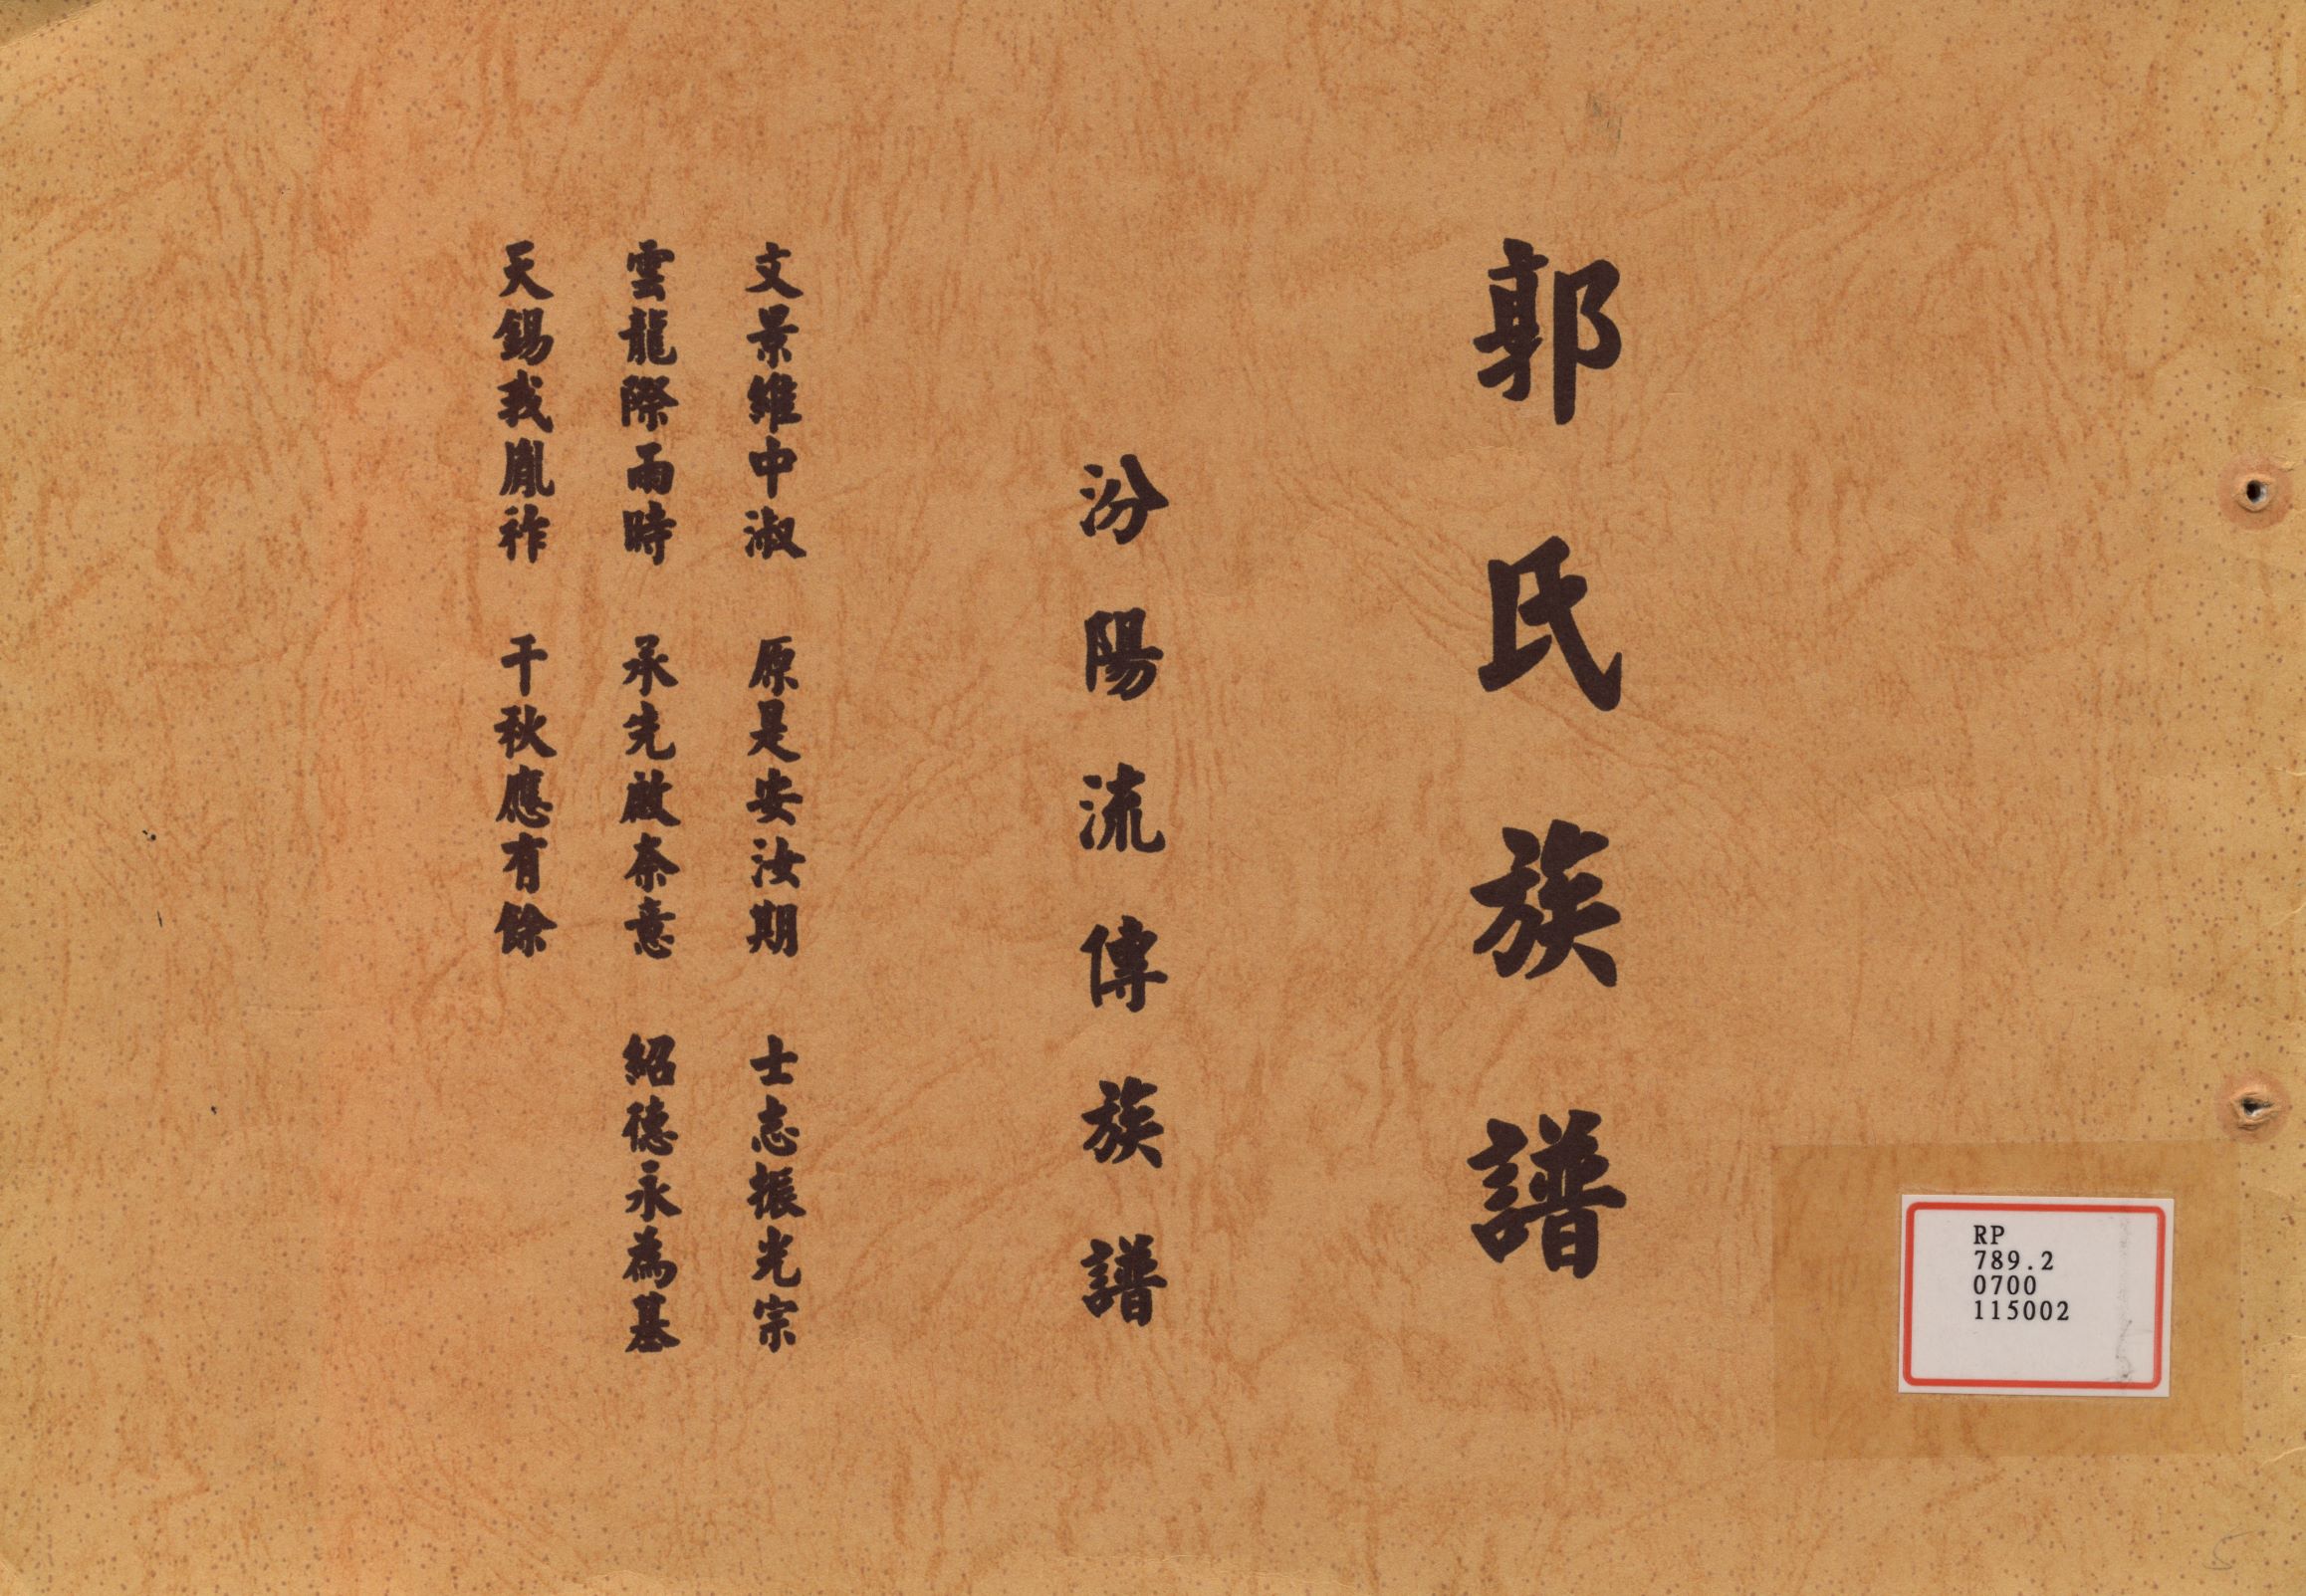 郭氏族譜
汾陽流傳族譜
文景維中淑 原是安汝期 士志振光宗
雲龍際雨時 承先啟奈意 紹德永為基
天錫我胤祚 千秋應有餘
RP
789.2
0700
115002